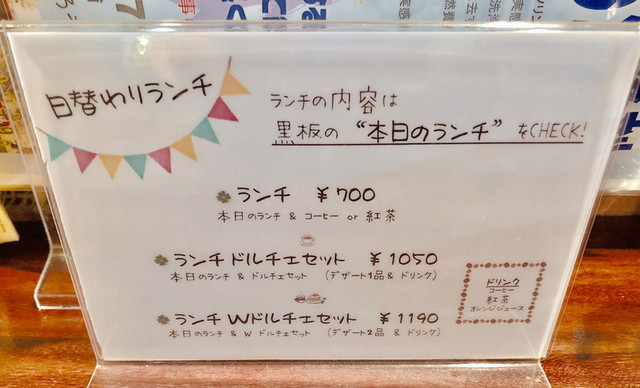 日替わりランチ
ランチの内容は
黒板の "本日のランチ" をCHECK!
ランチ ￥700
本日のランチ & コーヒー or 紅茶
ランチドルチェセット ￥1050
本日のランチ & ドルチェセット (デザート1品 & ドリンク)
ランチWドルチェセット ￥1190
本日のランチ & W ドルチェセット (デザート2品 & ドリンク)
ドリンク
コーヒー
紅茶
オレンジジュース